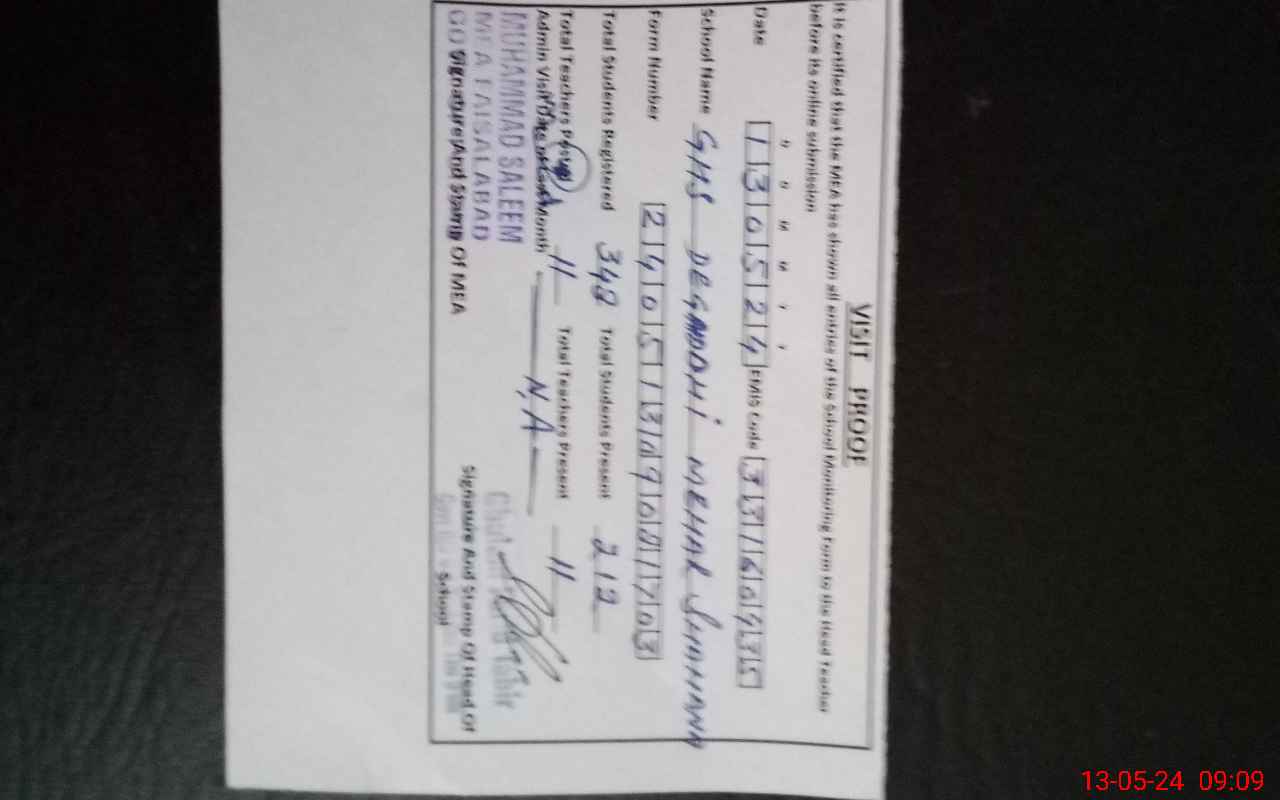 VISIT PROOF
It is certified that the MEA has shown all entries of the School Monitoring Form to the Head Teacher
before its online submission
D D M M Y Y
Date 130524 EMIS Code
School Name GHS DEGANDHI MEHAR SHAHANA
Form Number
Total Students Registered 348 Total Students Present 212
Total Teachers Posted 11 Total Teachers Present 11
Admin Visit Month N,A
MUHAMMAD SALEEM
MEA FAISALABAD
Signature And Stamp Of MEA
Signature And Stamp Of Head Of
School
13-05-24 09:09